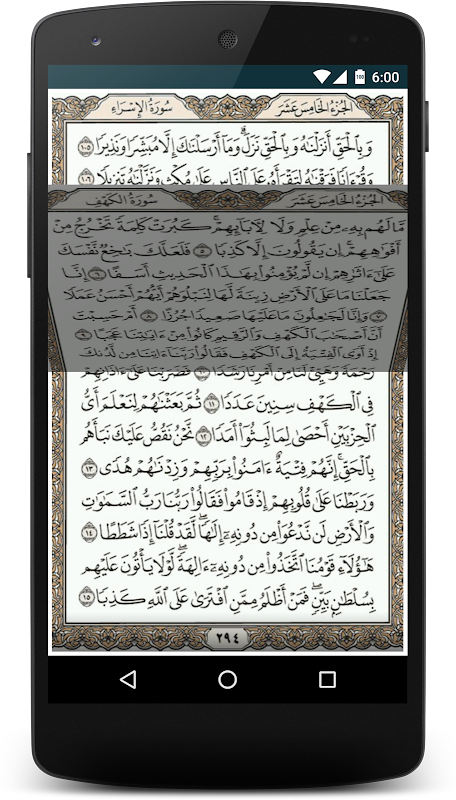 6:00
الجزء الخامس عشر سورة الإسراء
وَبِٱلْحَقِّ أَنزَلْنَٰهُ وَبِٱلْحَقِّ نَزَلَ ۗ وَمَآ أَرْسَلْنَٰكَ إِلَّا مُبَشِّرًا وَنَذِيرًا ١٠٥
وَقُرْءَانًا فَرَقْنَٰهُ لِتَقْرَأَهُۥ عَلَى ٱلنَّاسِ عَلَىٰ مُكْثٍ وَنَزَّلْنَٰهُ تَنزِيلًا ١٠٦
الجزء الخامس عشر سورة الكهف
مَّا لَهُم بِهِۦ مِنْ عِلْمٍ وَلَا لِءَابَآئِهِمْ ۚ كَبُرَتْ كَلِمَةً تَخْرُجُ مِنْ
أَفْوَٰهِهِمْ ۚ إِن يَقُولُونَ إِلَّا كَذِبًا ٥ فَلَعَلَّكَ بَٰخِعٌ نَّفْسَكَ
عَلَىٰٓ ءَاثَٰرِهِمْ إِن لَّمْ يُؤْمِنُوا۟ بِهَٰذَا ٱلْحَدِيثِ أَسَفًا ٦ إِنَّا
جَعَلْنَا مَا عَلَى ٱلْأَرْضِ زِينَةً لَّهَا لِنَبْلُوَهُمْ أَيُّهُمْ أَحْسَنُ عَمَلًا
٧ وَإِنَّا لَجَٰعِلُونَ مَا عَلَيْهَا صَعِيدًا جُرُزًا ٨ أَمْ حَسِبْتَ
أَنَّ أَصْحَٰبَ ٱلْكَهْفِ وَٱلرَّقِيمِ كَانُوا۟ مِنْ ءَايَٰتِنَا عَجَبًا ٩
إِذْ أَوَى ٱلْفِتْيَةُ إِلَى ٱلْكَهْفِ فَقَالُوا۟ رَبَّنَآ ءَاتِنَا مِن لَّدُنكَ
رَحْمَةً وَهَيِّئْ لَنَا مِنْ أَمْرِنَا رَشَدًا ١٠ فَضَرَبْنَا عَلَىٰٓ ءَاذَانِهِمْ
فِى ٱلْكَهْفِ سِنِينَ عَدَدًا ١١ ثُمَّ بَعَثْنَٰهُمْ لِنَعْلَمَ أَىُّ
ٱلْحِزْبَيْنِ أَحْصَىٰ لِمَا لَبِثُوٓا۟ أَمَدًا ١٢ نَّحْنُ نَقُصُّ عَلَيْكَ نَبَأَهُم
بِٱلْحَقِّ ۚ إِنَّهُمْ فِتْيَةٌ ءَامَنُوا۟ بِرَبِّهِمْ وَزِدْنَٰهُمْ هُدًى ١٣
وَرَبَطْنَا عَلَىٰ قُلُوبِهِمْ إِذْ قَامُوا۟ فَقَالُوا۟ رَبُّنَا رَبُّ ٱلسَّمَٰوَٰتِ
وَٱلْأَرْضِ لَن نَّدْعُوَا۟ مِن دُونِهِۦٓ إِلَٰهًا ۖ لَّقَدْ قُلْنَآ إِذًا شَطَطًا ١٤
هَٰٓؤُلَآءِ قَوْمُنَا ٱتَّخَذُوا۟ مِن دُونِهِۦٓ ءَالِهَةً ۖ لَّوْلَا يَأْتُونَ عَلَيْهِم
بِسُلْطَٰنٍۭ بَيِّنٍ ۖ فَمَنْ أَظْلَمُ مِمَّنِ ٱفْتَرَىٰ عَلَى ٱللَّهِ كَذِبًا ١٥
٢٩٤